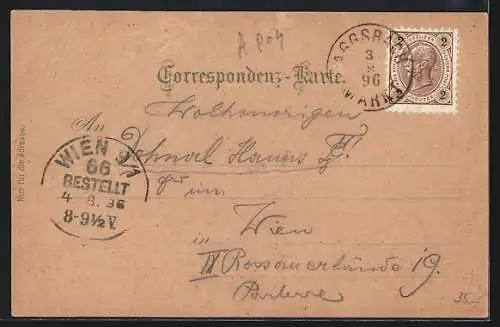 A P04
AGGSBACH
3
8
96
MARKT
2 2
2 2
Correspondenz-Karte.
Wohlmorigen
An
Hanns F.
WIEN 9/1
66
BESTELLT
4. 8. 96
8-9½V
Nur für die Adresse.
in Wien
IX Rossauerlände 19.
Parterre
35.-